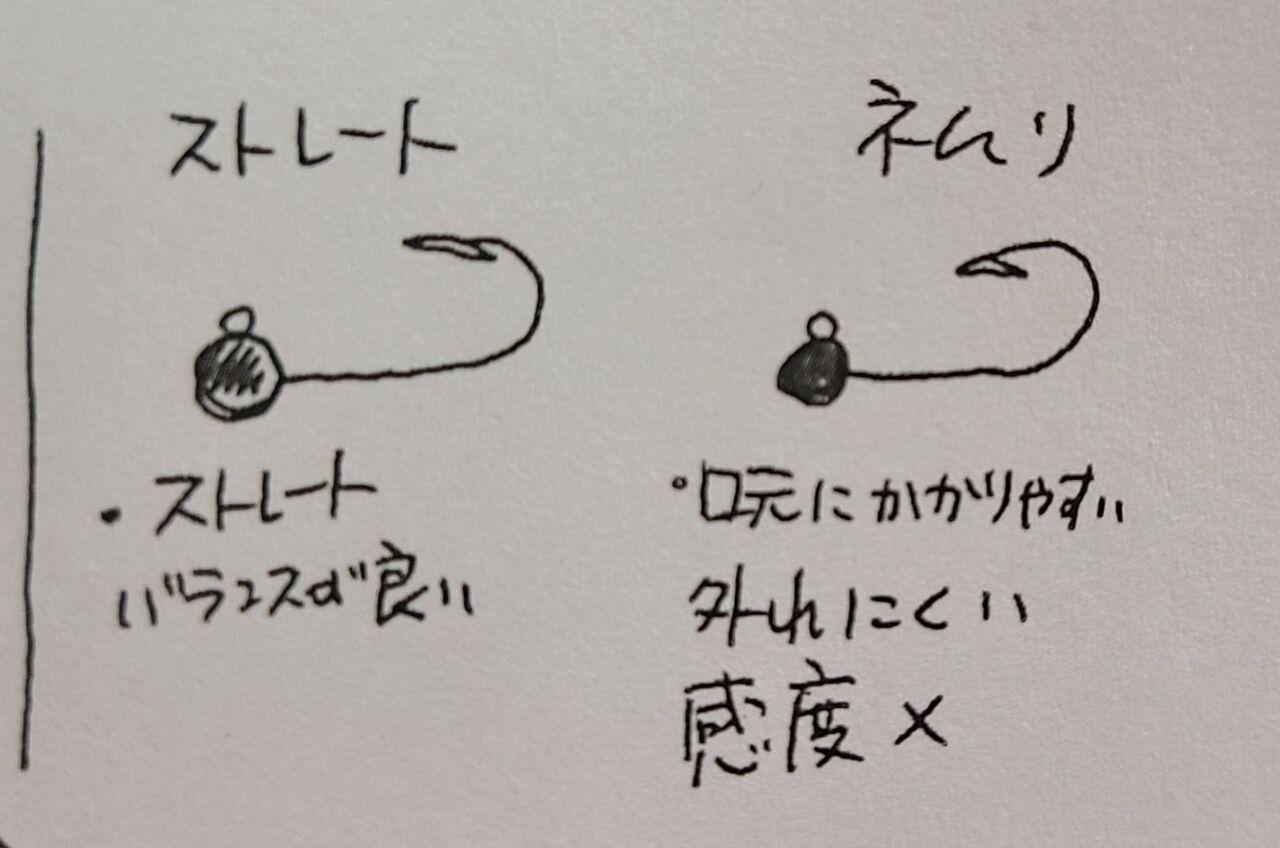 ストレート
ネムリ
・ストレート
バランスが良い
・口元にかかりやすい
外れにくい
感度×